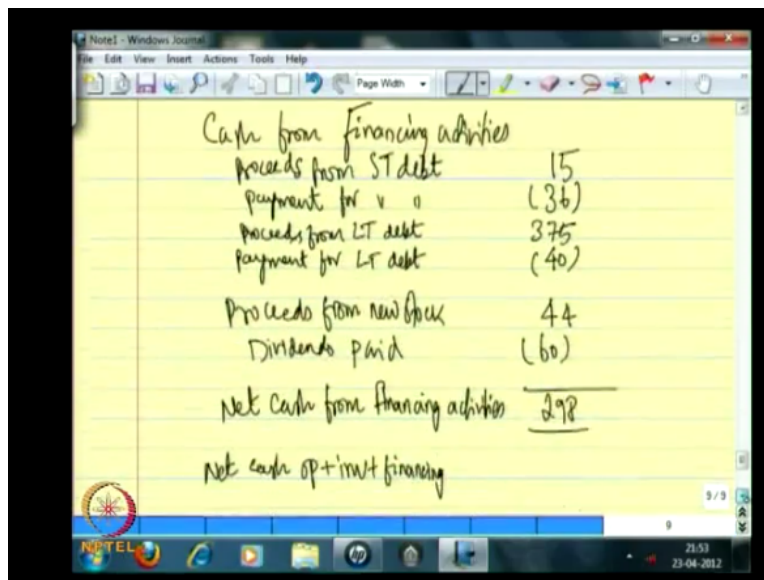 Note1 - Windows Journal
File Edit View Insert Actions Tools Help
Page Width
Cash from Financing activities
Proceeds from ST debt 15
Payment for " " (36)
Proceeds from LT debt 375
Payment for LT debt (40)
Proceeds from new stock 44
Dividends paid (60)
Net cash from financing activities 298
Net cash op+inv+financing
9/9
9
NPTEL
21:53
23-04-2012